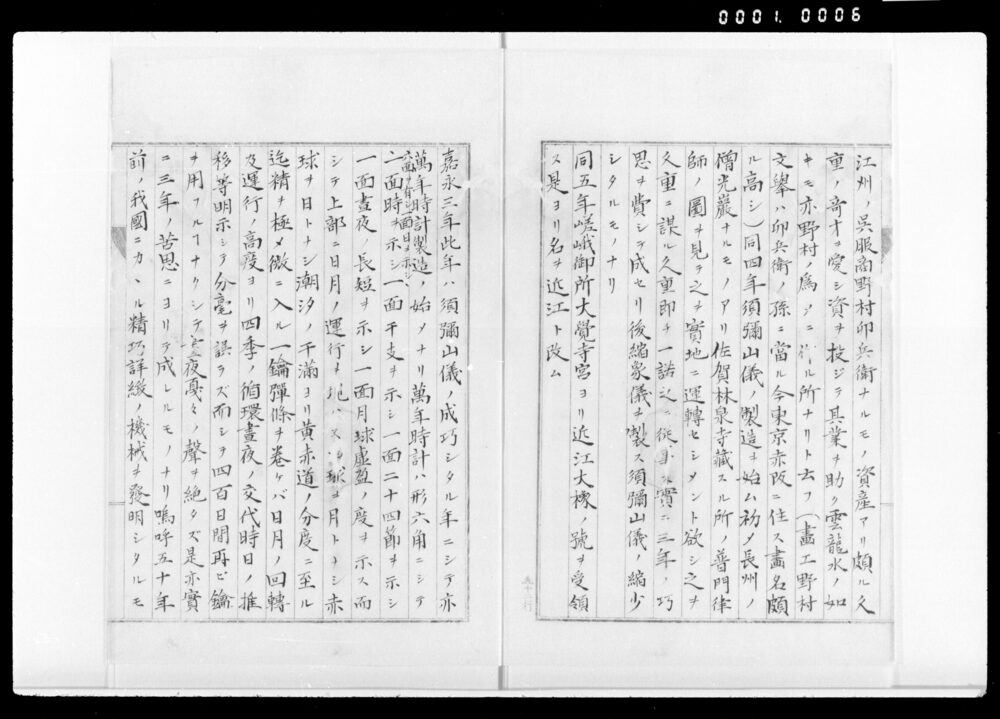 0001.0006
江州ノ呉服商野村卯兵衛ナルモノ資産アリ頗ル久
重ノ奇才ヲ愛シ資ヲ投ジテ其業ヲ助ク雲龍水ノ如
キモ亦野村ノ為シニ ル所ナリト云フ(畫工野村
文擧ハ卯兵衛ノ孫ニ當ル今東京赤阪ニ住ス畫名頗
ル高シ)同四年須彌山儀ノ製造ヲ始ム初メ長州ノ
僧光嚴ナルモノアリ佐賀林泉寺藏スル所ノ普門律
師ノ圖ヲ見テ之ヲ實地ニ運轉セシメント欲シ之ヲ
久重ニ謀ル久重即チ一諾之ニ從事ス實ニ三年ノ巧
思ヲ費シテ成セリ後縮象儀ヲ製ス須彌山儀ノ縮少
シタルモノナリ
同五年嵯峨御所大覺寺宮ヨリ近江大掾ノ號ヲ受領
ス是ヨリ名ヲ近江ト改ム
嘉永三年此年ハ須彌山儀ノ成巧シタル年ニシテ亦
萬年時計製造ノ始メナリ萬年時計ハ形六角ニシテ
六面ヲ有シ一面日ヲ示シ
二面時ヲ示シ一面干支ヲ示シ一面二十四節ヲ示シ
一面晝夜ノ長短ヲ示シ一面月球虚盈ノ度ヲ示ス而
シテ上部ニ日月ノ運行ヲ 球ヲ月トナシ赤
球ヲ日トナシ潮汐ノ干滿ヨリ黄赤道ノ分度ニ至ル
迄精ヲ極メ微ニ入ル一鑰彈條ヲ卷ケバ日月ノ回轉
及運行ノ高度ヨリ四季ノ循環晝夜ノ交代時日ノ推
移等明示シテ分毫ヲ誤ラズ而シテ四百日間再ビ鑰
ヲ用フルヿナクシテ晝夜戞々ノ聲ヲ絶タズ是亦實
ニ三年ノ苦思ニヨリテ成レルモノナリ嗚呼五十年
前ノ我國ニカヽル精巧詳緻ノ機械ヲ發明シタルモ